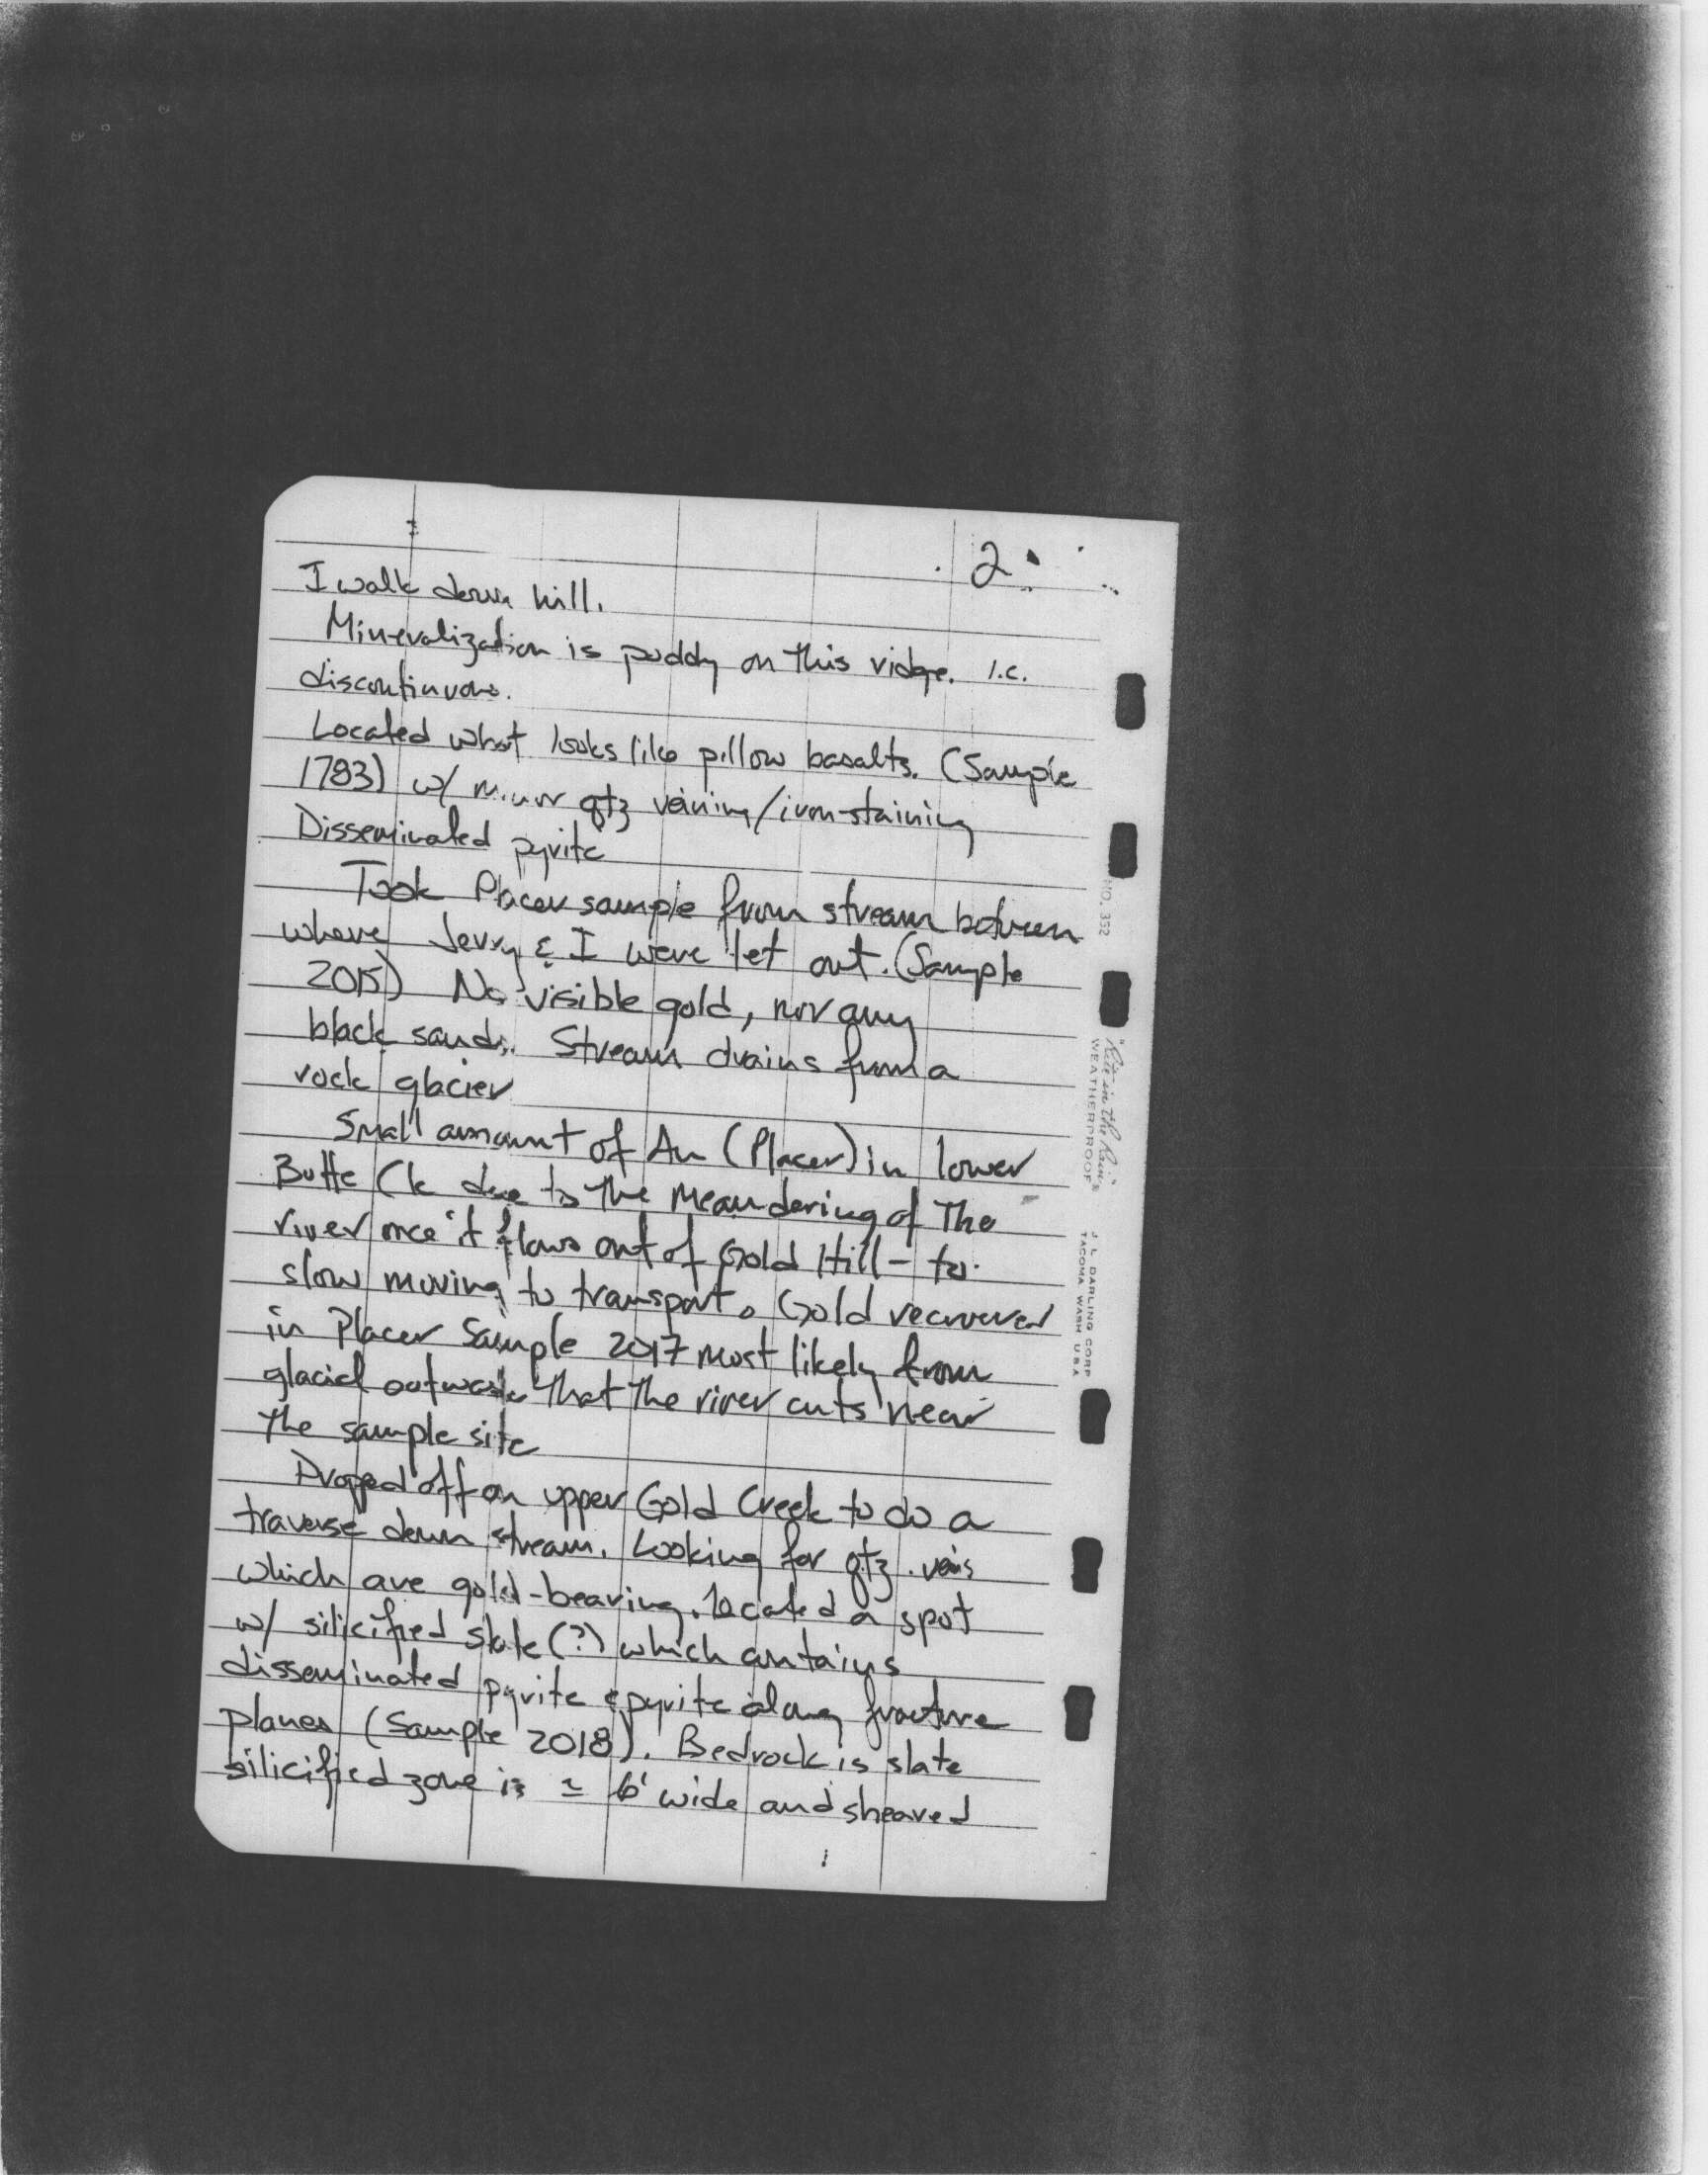 2
I walk down hill.
Mineralization is poddy on this ridge. i.e.
discontinuous.
Located what looks like pillow basalts. (Sample
1783) w/ minor qtz veining/iron-staining
Disseminated pyrite
Took Placer sample from stream between
where Jerry & I were let out. (Sample
2015) No visible gold, nor any
black sands. Stream drains from a
rock glacier
Small amount of Au (Placer) in lower
Butte Ck due to the meandering of The
river once it flows out of Gold Hill - to
slow moving to transport. Gold recovered
in Placer Sample 2017 most likely from
glacial outwash that the river cuts near
the sample site
Droped off on upper Gold Creek to do a
traverse down stream. Looking for qtz. veis
which are gold-bearing. located a spot
w/ silicified slate (?) which contains
disseminated pyrite & pyrite along fracture
planes (Sample 2018). Bedrock is slate
silicified zone is ≃ 6' wide and sheared
NO. 352
"Rite in the Rain"
WEATHERPROOF
J. L. DARLING CORP
TACOMA WASH U S A